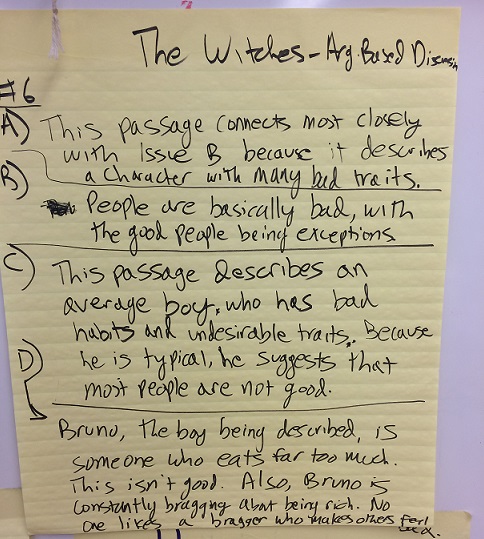 The Witches - Arg. Based Discussin
#6
A) This passage connects most closely
with Issue B because it describes
a character with many bad traits.
B) People are basically bad, with
the good people being exceptions
C) This passage describes an
average boy, who has bad
habits and undesirable traits. Because
he is typical, he suggests that
most people are not good.
D) Bruno, the boy being described, is
someone who eats far too much.
This isn't good. Also, Bruno is
constantly bragging about being rich. No
one likes a bragger who makes others feel
bad.